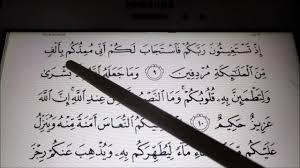 SAMSUNG
إِذْ تَسْتَغِيثُونَ رَبَّكُمْ فَاسْتَجَابَ لَكُمْ أَنِّي مُمِدُّكُم بِأَلْفٍ
مِّنَ الْمَلَائِكَةِ مُرْدِفِينَ ٩ وَمَا جَعَلَهُ بُشْرَىٰ
وَلِتَطْمَئِنَّ بِهِ قُلُوبُكُمْ وَمَا النَّصْرُ عِندِ اللَّهِ إِنَّ اللَّهَ
عَزِيزٌ حَكِيمٌ ١٠ النُّعَاسَ أَمَنَةً مِّنْهُ وَيُنَزِّلُ
عَلَيْكُم مَاءً لِّيُطَهِّرَكُم بِهِ وَيُذْهِبَ عَنكُمْ رِجْزَ